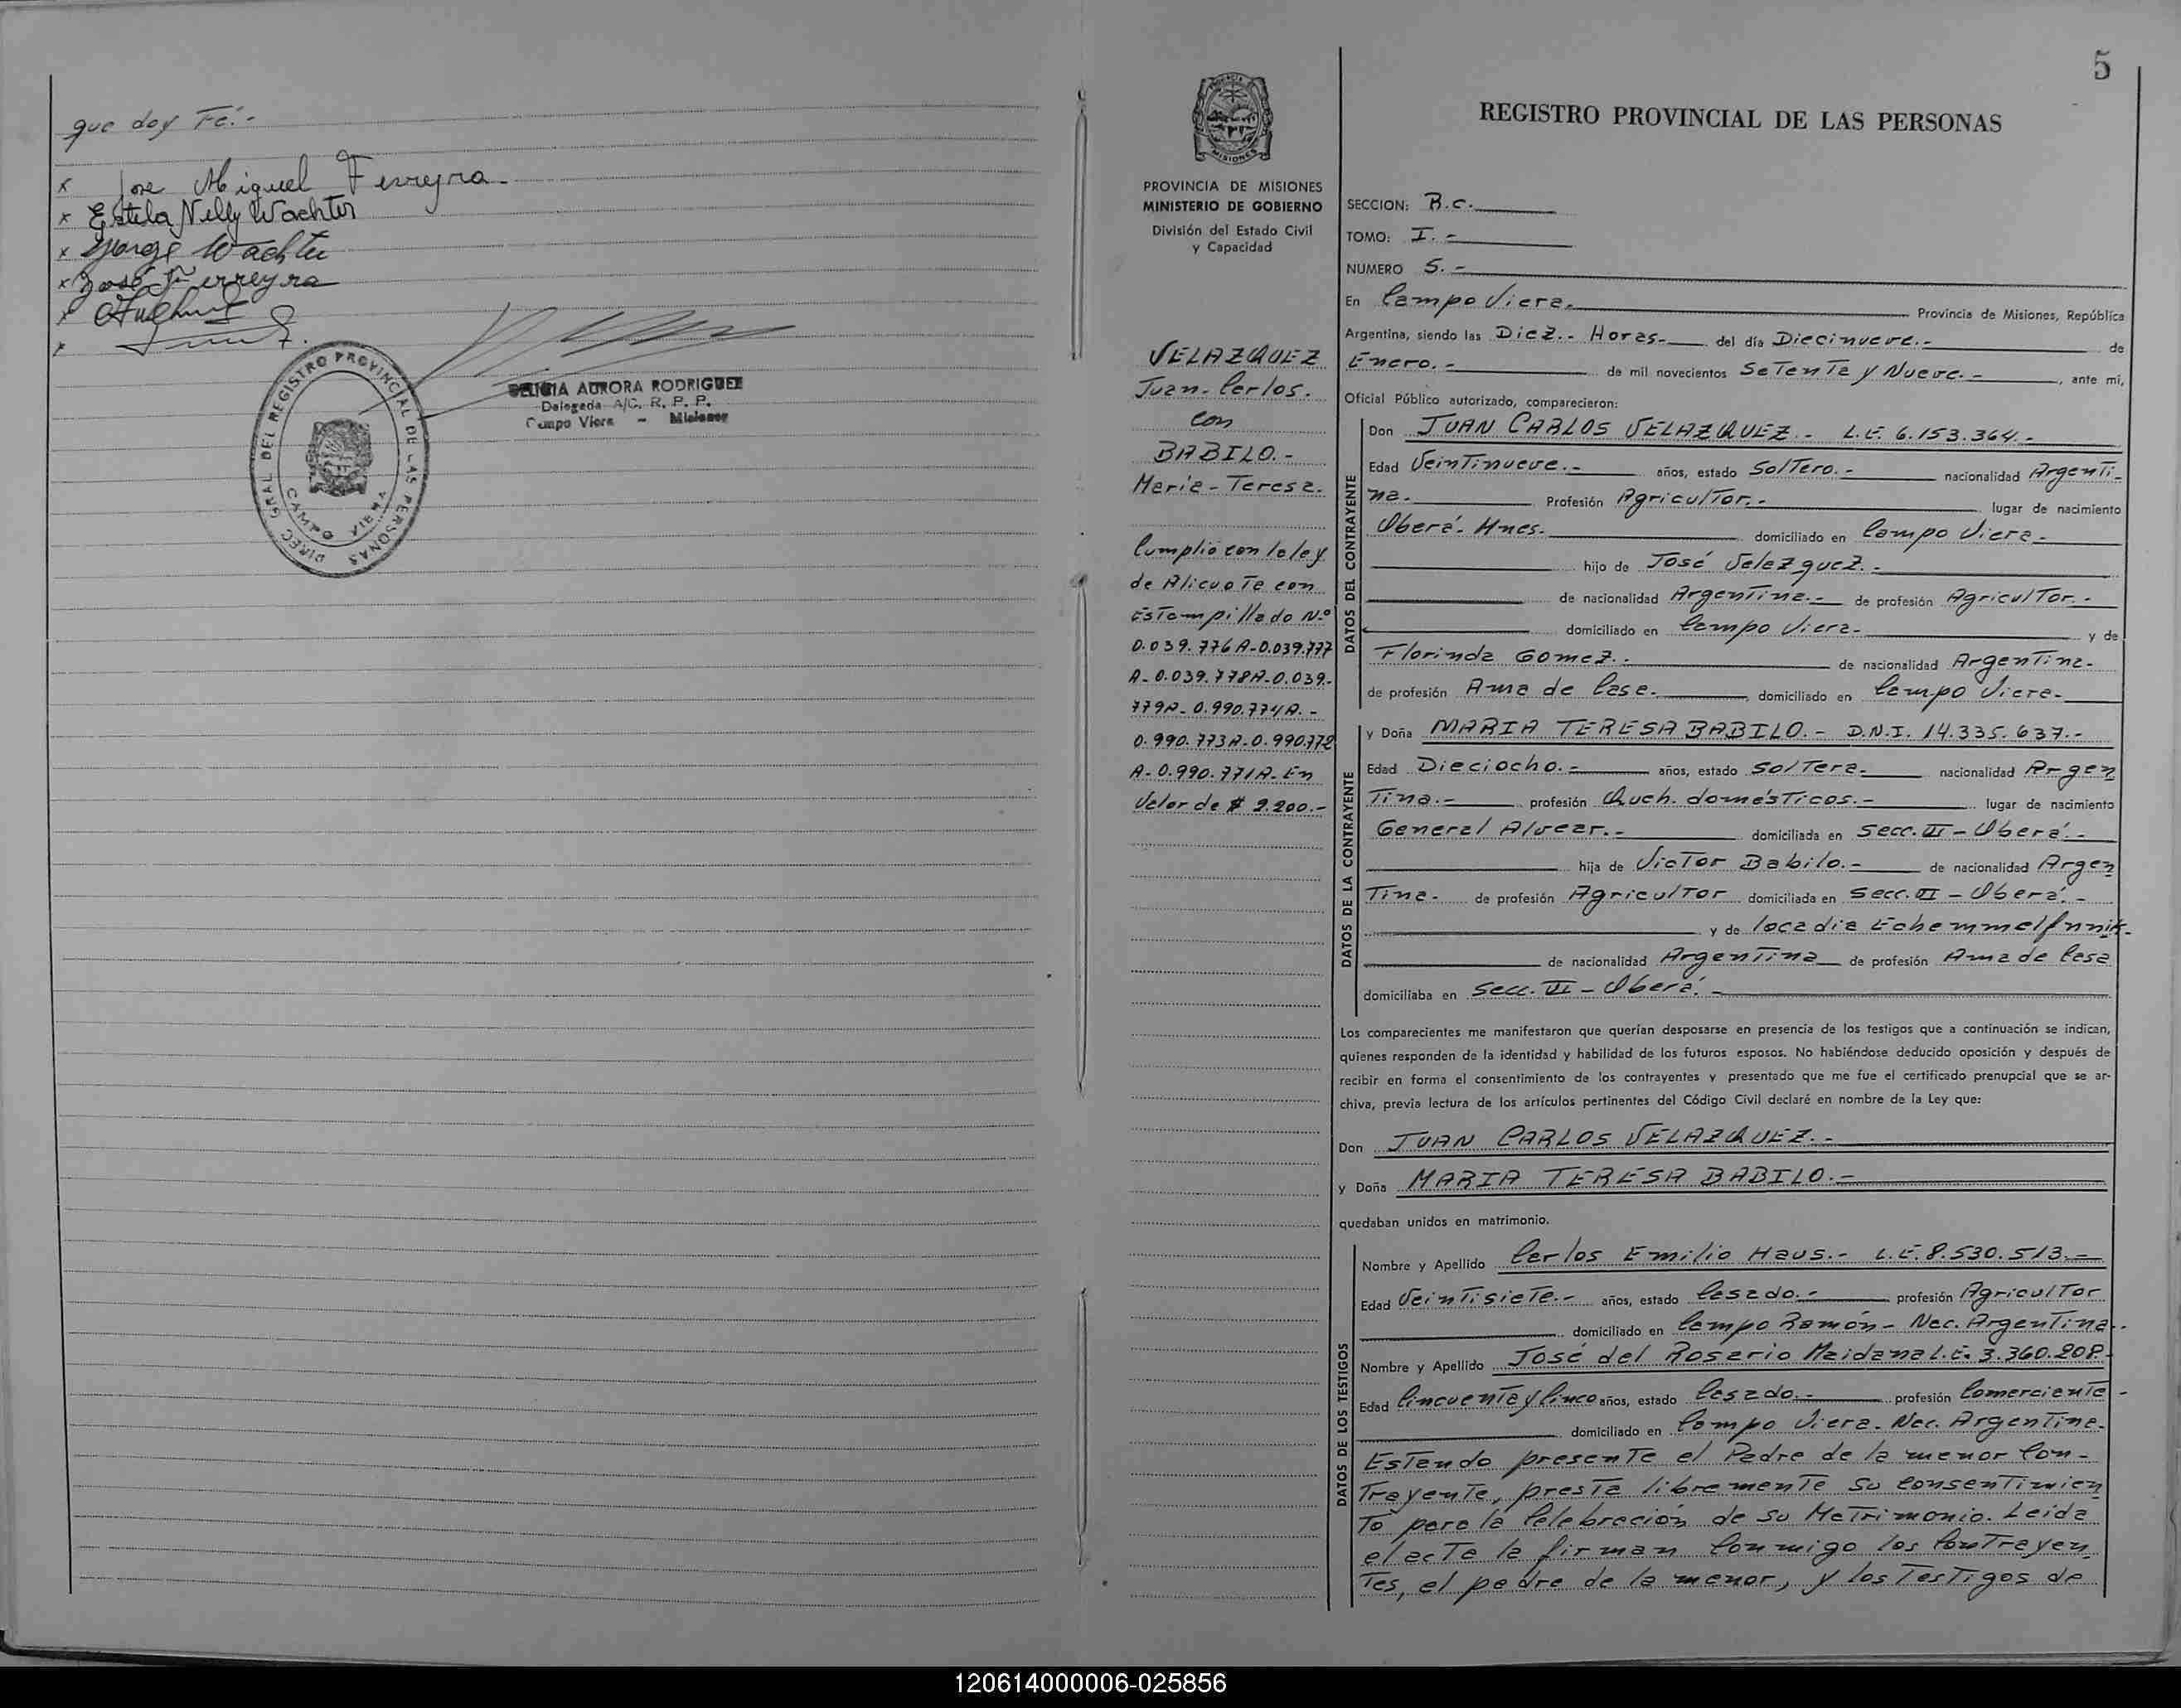 que doy Fé.-
x José Miguel Ferreyra
x Estela Nelly Wachter
x Jorge Wachter
x José Ferreyra
x
x
DELICIA AURORA RODRIGUEZ
Delegada A/C. R. P. P.
Campo Viera - Misiones
DIREC. GRAL. DEL REGISTRO PROVINCIAL DE LAS PERSONAS
CAMPO VIERA
5
PROVINCIA DE MISIONES
MINISTERIO DE GOBIERNO
División del Estado Civil
y Capacidad
VELAZQUEZ
Juan-Carlos.
con
BABILO.-
María-Teresa.
Cumplió con la ley
de Alicuota con
Estampillado N.º
0.039.776A-0.039.777
A-0.039.778A-0.039.-
779A-0.990.774A.-
0.990.773A-0.990.772
A-0.990.771A-En
Valor de $ 2.200.-
REGISTRO PROVINCIAL DE LAS PERSONAS
SECCION: B.C.
TOMO: I.-
NUMERO 5.-
En Campo Viera. Provincia de Misiones, República
Argentina, siendo las Diez.- Horas- del día Diecinueve.- de
Enero.- de mil novecientos Setenta y Nueve.-, ante mí,
Oficial Público autorizado, comparecieron:
DATOS DEL CONTRAYENTE
Don JUAN CARLOS VELAZQUEZ.- L.E. 6.153.364.-
Edad Veintinueve.- años, estado Soltero.- nacionalidad Argenti-
na.- Profesión Agricultor.- lugar de nacimiento
Oberá-Mnes. domiciliado en Campo Viera-
hijo de José Velazquez.-
de nacionalidad Argentina.- de profesión Agricultor.-
domiciliado en Campo Viera- y de
Florinda Gomez.- de nacionalidad Argentina-
de profesión Ama de Casa.-, domiciliado en Campo Viera-
DATOS DE LA CONTRAYENTE
y Doña MARIA TERESA BABILO.- D.N.I. 14.335.637.-
Edad Dieciocho.- años, estado Soltera- nacionalidad Argen
Tina.- profesión Queh. domésticos.- lugar de nacimiento
General Alvear.- domiciliada en Secc. VI-Oberá.-
hija de Victor Babilo.- de nacionalidad Argen
Tina- de profesión Agricultor domiciliada en Secc. VI-Oberá.-
y de locadia
de nacionalidad Argentina de profesión Ama de Casa
domiciliaba en Secc. VI-Oberá.-
Los comparecientes me manifestaron que querían desposarse en presencia de los testigos que a continuación se indican,
quienes responden de la identidad y habilidad de los futuros esposos. No habiéndose deducido oposición y después de
recibir en forma el consentimiento de los contrayentes y presentado que me fue el certificado prenupcial que se ar-
chiva, previa lectura de los artículos pertinentes del Código Civil declaré en nombre de la Ley que:
Don JUAN CARLOS VELAZQUEZ.-
y Doña MARIA TERESA BABILO.-
quedaban unidos en matrimonio.
DATOS DE LOS TESTIGOS
Nombre y Apellido Carlos Emilio Haus.- L.E. 8.530.513.-
Edad Veintisiete.- años, estado Casado.- profesión Agricultor
domiciliado en Campo Ramón- Nac. Argentina.
Nombre y Apellido José del Rosario Maidana L.E. 3.360.208.
Edad Cincuenta y Cinco años, estado Casado.- profesión Comerciante-
domiciliado en Campo Viera- Nac. Argentina.
Estando presente el Padre de la menor Con-
Trayente, presta libremente su consentimien
To para la Celebración de su Matrimonio. Leida
el acta la firman Conmigo los Contrayen
Tes, el padre de la menor, y los Testigos de
120614000006-025856